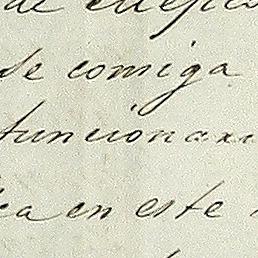 de
se comiga
funcionari
ca en este